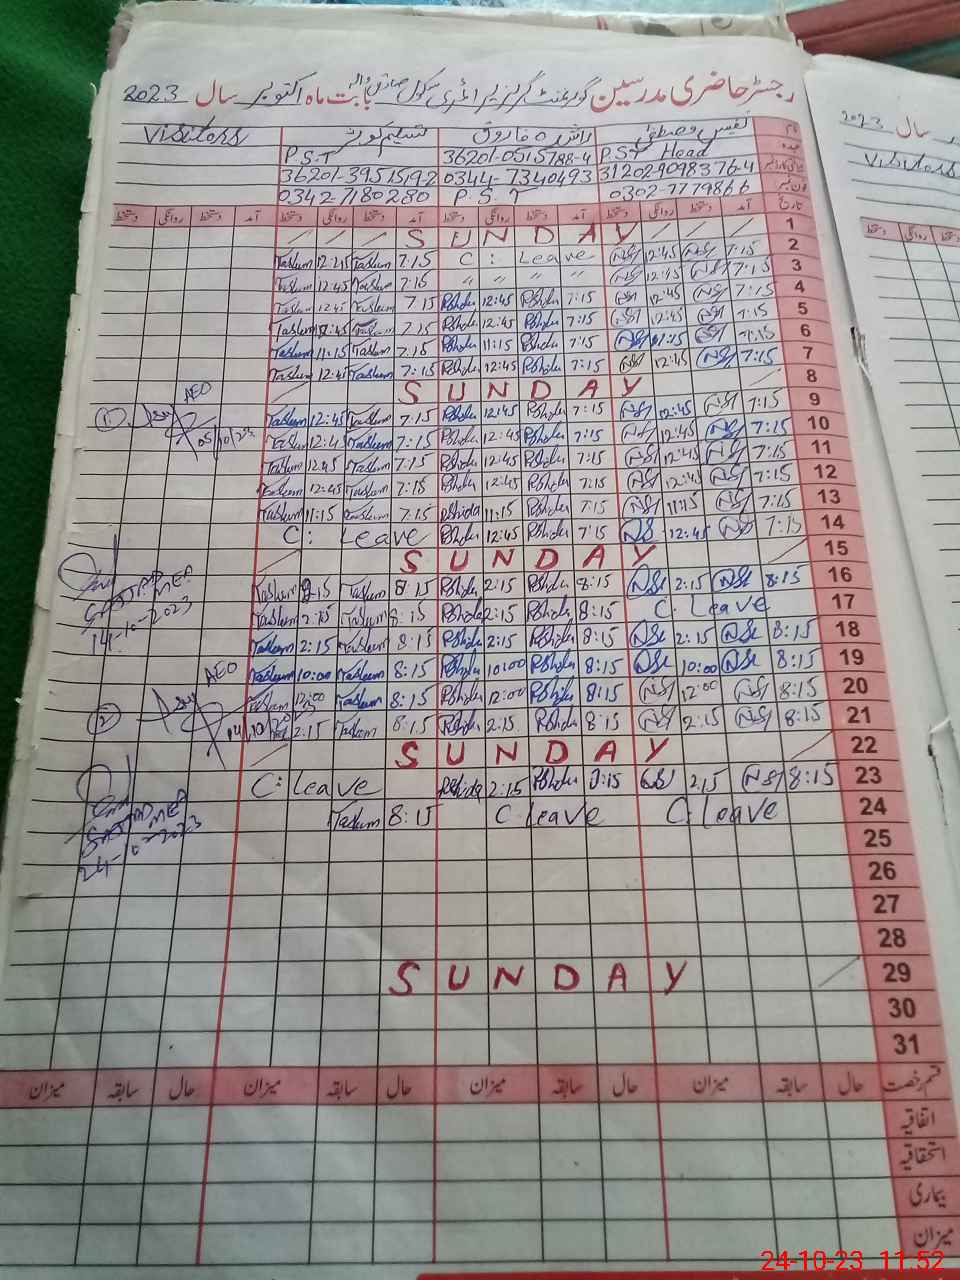 رجسٹر حاضری مدرسین گورنمنٹ گرلز پرائمری سکول صادق والہ بابت ماہ اکتوبر سال 2023
نام نفیس مصطفیٰ راشدہ فاروق تسلیم کوثر Visitors
عہدہ PST Head 36201-0515788-4 P.S.T
31202-9098376-4 0344-7340493 36201-3951519-2
0302-7779866 P.S.T 0342-7180280
تاریخ آمد دستخط روانگی دستخط آمد دستخط روانگی دستخط آمد دستخط روانگی دستخط آمد دستخط روانگی دستخط
S U N D A Y 1
Taslum 12:45 Taslum 7:15 C: Leave 12:45 7:15 2
Taslum 12:45 Taslum 7:15 " " " " 12:45 7:15 3
Taslum 12:45 Taslum 7:15 Rshida 12:45 Rshida 7:15 12:45 7:15 4
Taslum 12:45 Taslum 7:15 Rshida 12:45 Rshida 7:15 12:45 7:15 5
Taslum 11:15 Taslum 7:15 Rshida 11:15 Rshida 7:15 11:15 7:15 6
Taslum 12:45 Taslum 7:15 Rshida 12:45 Rshida 7:15 12:45 7:15 7
S U N D A Y 8
① AEO 05/10/23
Taslum 12:45 Taslum 7:15 Rshida 12:45 Rshida 7:15 12:45 7:15 9
Taslum 12:45 Taslum 7:15 Rshida 12:45 Rshida 7:15 12:45 7:15 10
Taslum 12:45 Taslum 7:15 Rshida 12:45 Rshida 7:15 12:45 7:15 11
Taslum 12:45 Taslum 7:15 Rshida 12:45 Rshida 7:15 12:45 7:15 12
Taslum 11:15 Taslum 7:15 Rshida 11:15 Rshida 7:15 11:15 7:15 13
C: Leave Rshida 12:45 Rshida 7:15 12:45 7:15 14
S U N D A Y 15
MEA
14-10-2023
Taslum 2:15 Taslum 8:15 Rshida 2:15 Rshida 8:15 2:15 8:15 16
Taslum 2:15 Taslum 8:15 Rshida 2:15 Rshida 8:15 C. Leave 17
Taslum 2:15 Taslum 8:15 Rshida 2:15 Rshida 8:15 2:15 8:15 18
Taslum 10:00 Taslum 8:15 Rshida 10:00 Rshida 8:15 10:00 8:15 19
Taslum 12:00 Taslum 8:15 Rshida 12:00 Rshida 8:15 12:00 8:15 20
2:15 Taslum 8:15 Rshida 2:15 Rshida 8:15 2:15 8:15 21
② AEO
S U N D A Y 22
C: Leave Rshida 2:15 Rshida 8:15 2:15 8:15 23
Taslum 8:15 C Leave C. Leave 24
MEA
24-10-2023
25
26
27
28
S U N D A Y 29
30
31
قسم رخصت حال سابقہ میزان حال سابقہ میزان حال سابقہ میزان حال سابقہ میزان
اتفاقیہ
استحقاقیہ
بیماری
میزان
سال 2023
Visitors
دستخط روانگی دستخط
24-10-23 11:52